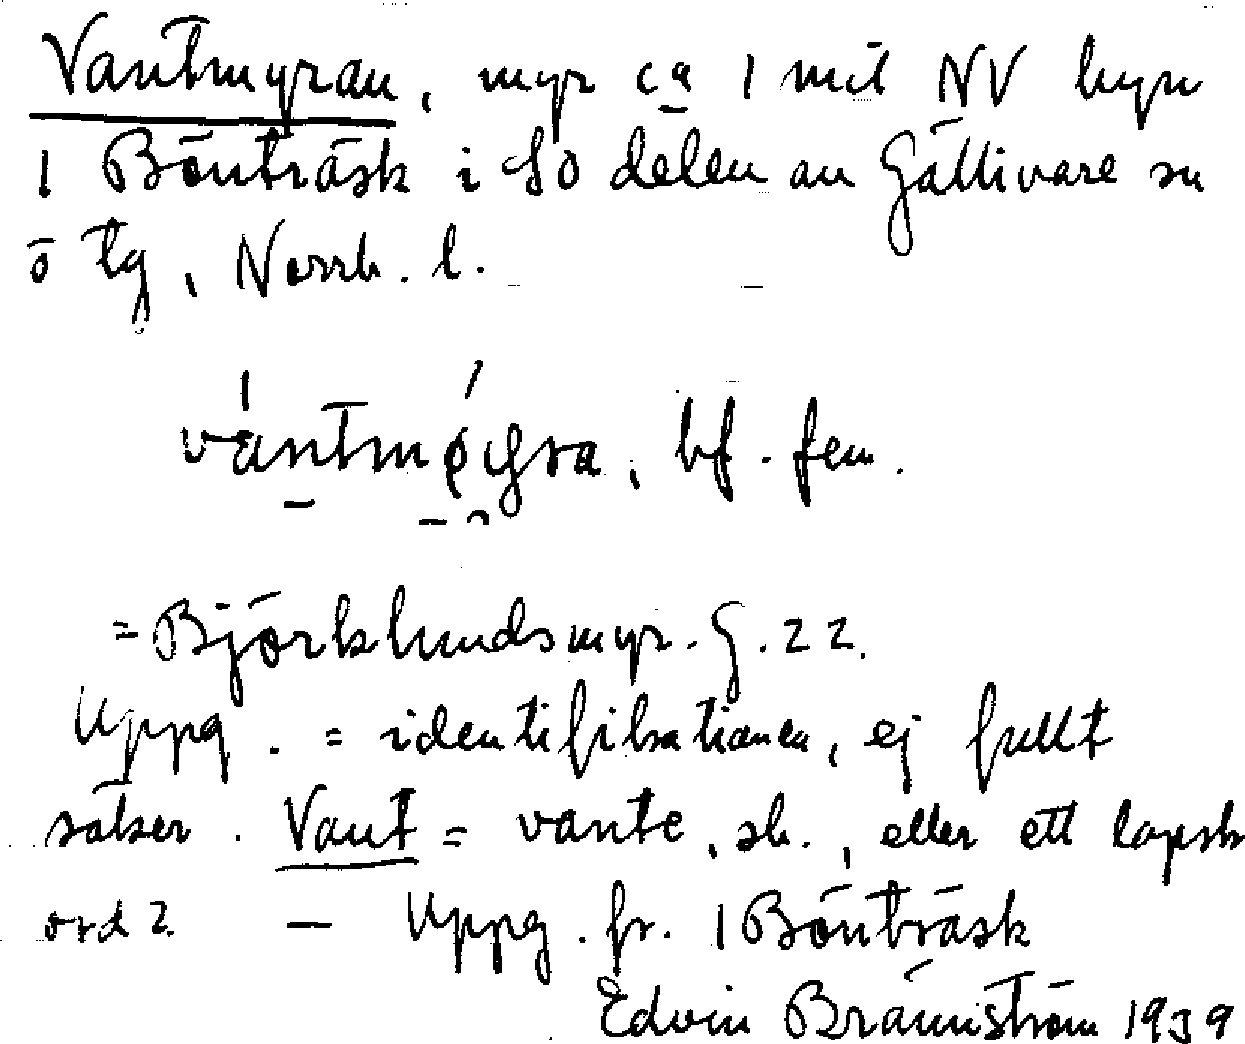 Vantmyran, myr ca 1 mil NV byn
1 Bönträsk i SO delen av Gällivare sn
o tg, Norrb. l.
vantmøyra, bf. fem.
= Björklundsmyr. G. 22.
Uppg. = identifikationen, ej fullt
säker. Vant = vante, sb., eller ett lapsk
ord? — Uppg. fr. 1 Bönträsk
Edvin Brännström 1939